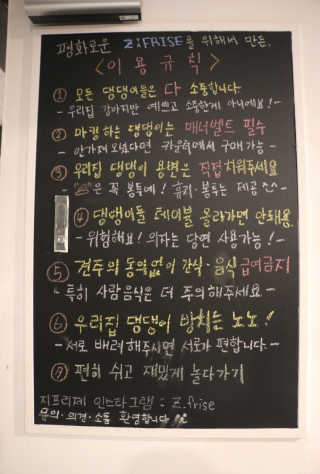 평화로운 Z:FRISE을 위해서 만든,
<이용규칙>
① 모든 댕댕이들은 다 소중합니다
- 우리집 강아지만 예쁘고 소중한게 아니에요! -
② 마킹하는 댕댕이는 매너벨트 필수
- 안가져오셨다면 카운터에서 구매 가능 -
③ 우리집 댕댕이 용변은 직접 치워주세요
은 꼭 봉투에! 휴지·봉투는 제공
④ 댕댕이들 테이블 올라가면 안돼용
- 위험해요! 의자는 당연 사용가능! -
⑤ 견주의 동의없이 간식·음식 급여금지
특히 사람음식은 더 주의해주세요 -
⑥ 우리집 댕댕이 방치는 노노!
- 서로 배려 해주시면 서로가 편합니다 -
⑦ 편히 쉬고 재밌게 놀다가기
지프리제 인스타그램 : Z.frise
문의·의견·소통 환영합니다